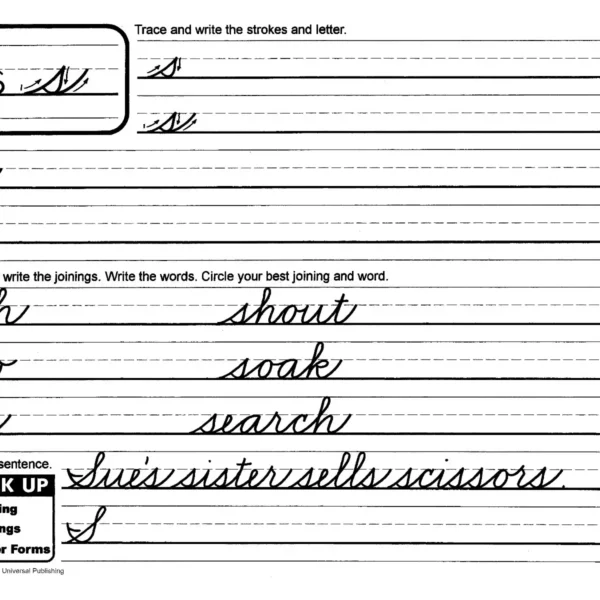 Trace and write the strokes and letter.
s s
s
s
write the joinings. Write the words. Circle your best joining and word.
h shout
o soak
search
sentence.
Sue's sister sells scissors.
K UP
S
ing
ngs
r Forms
Universal Publishing